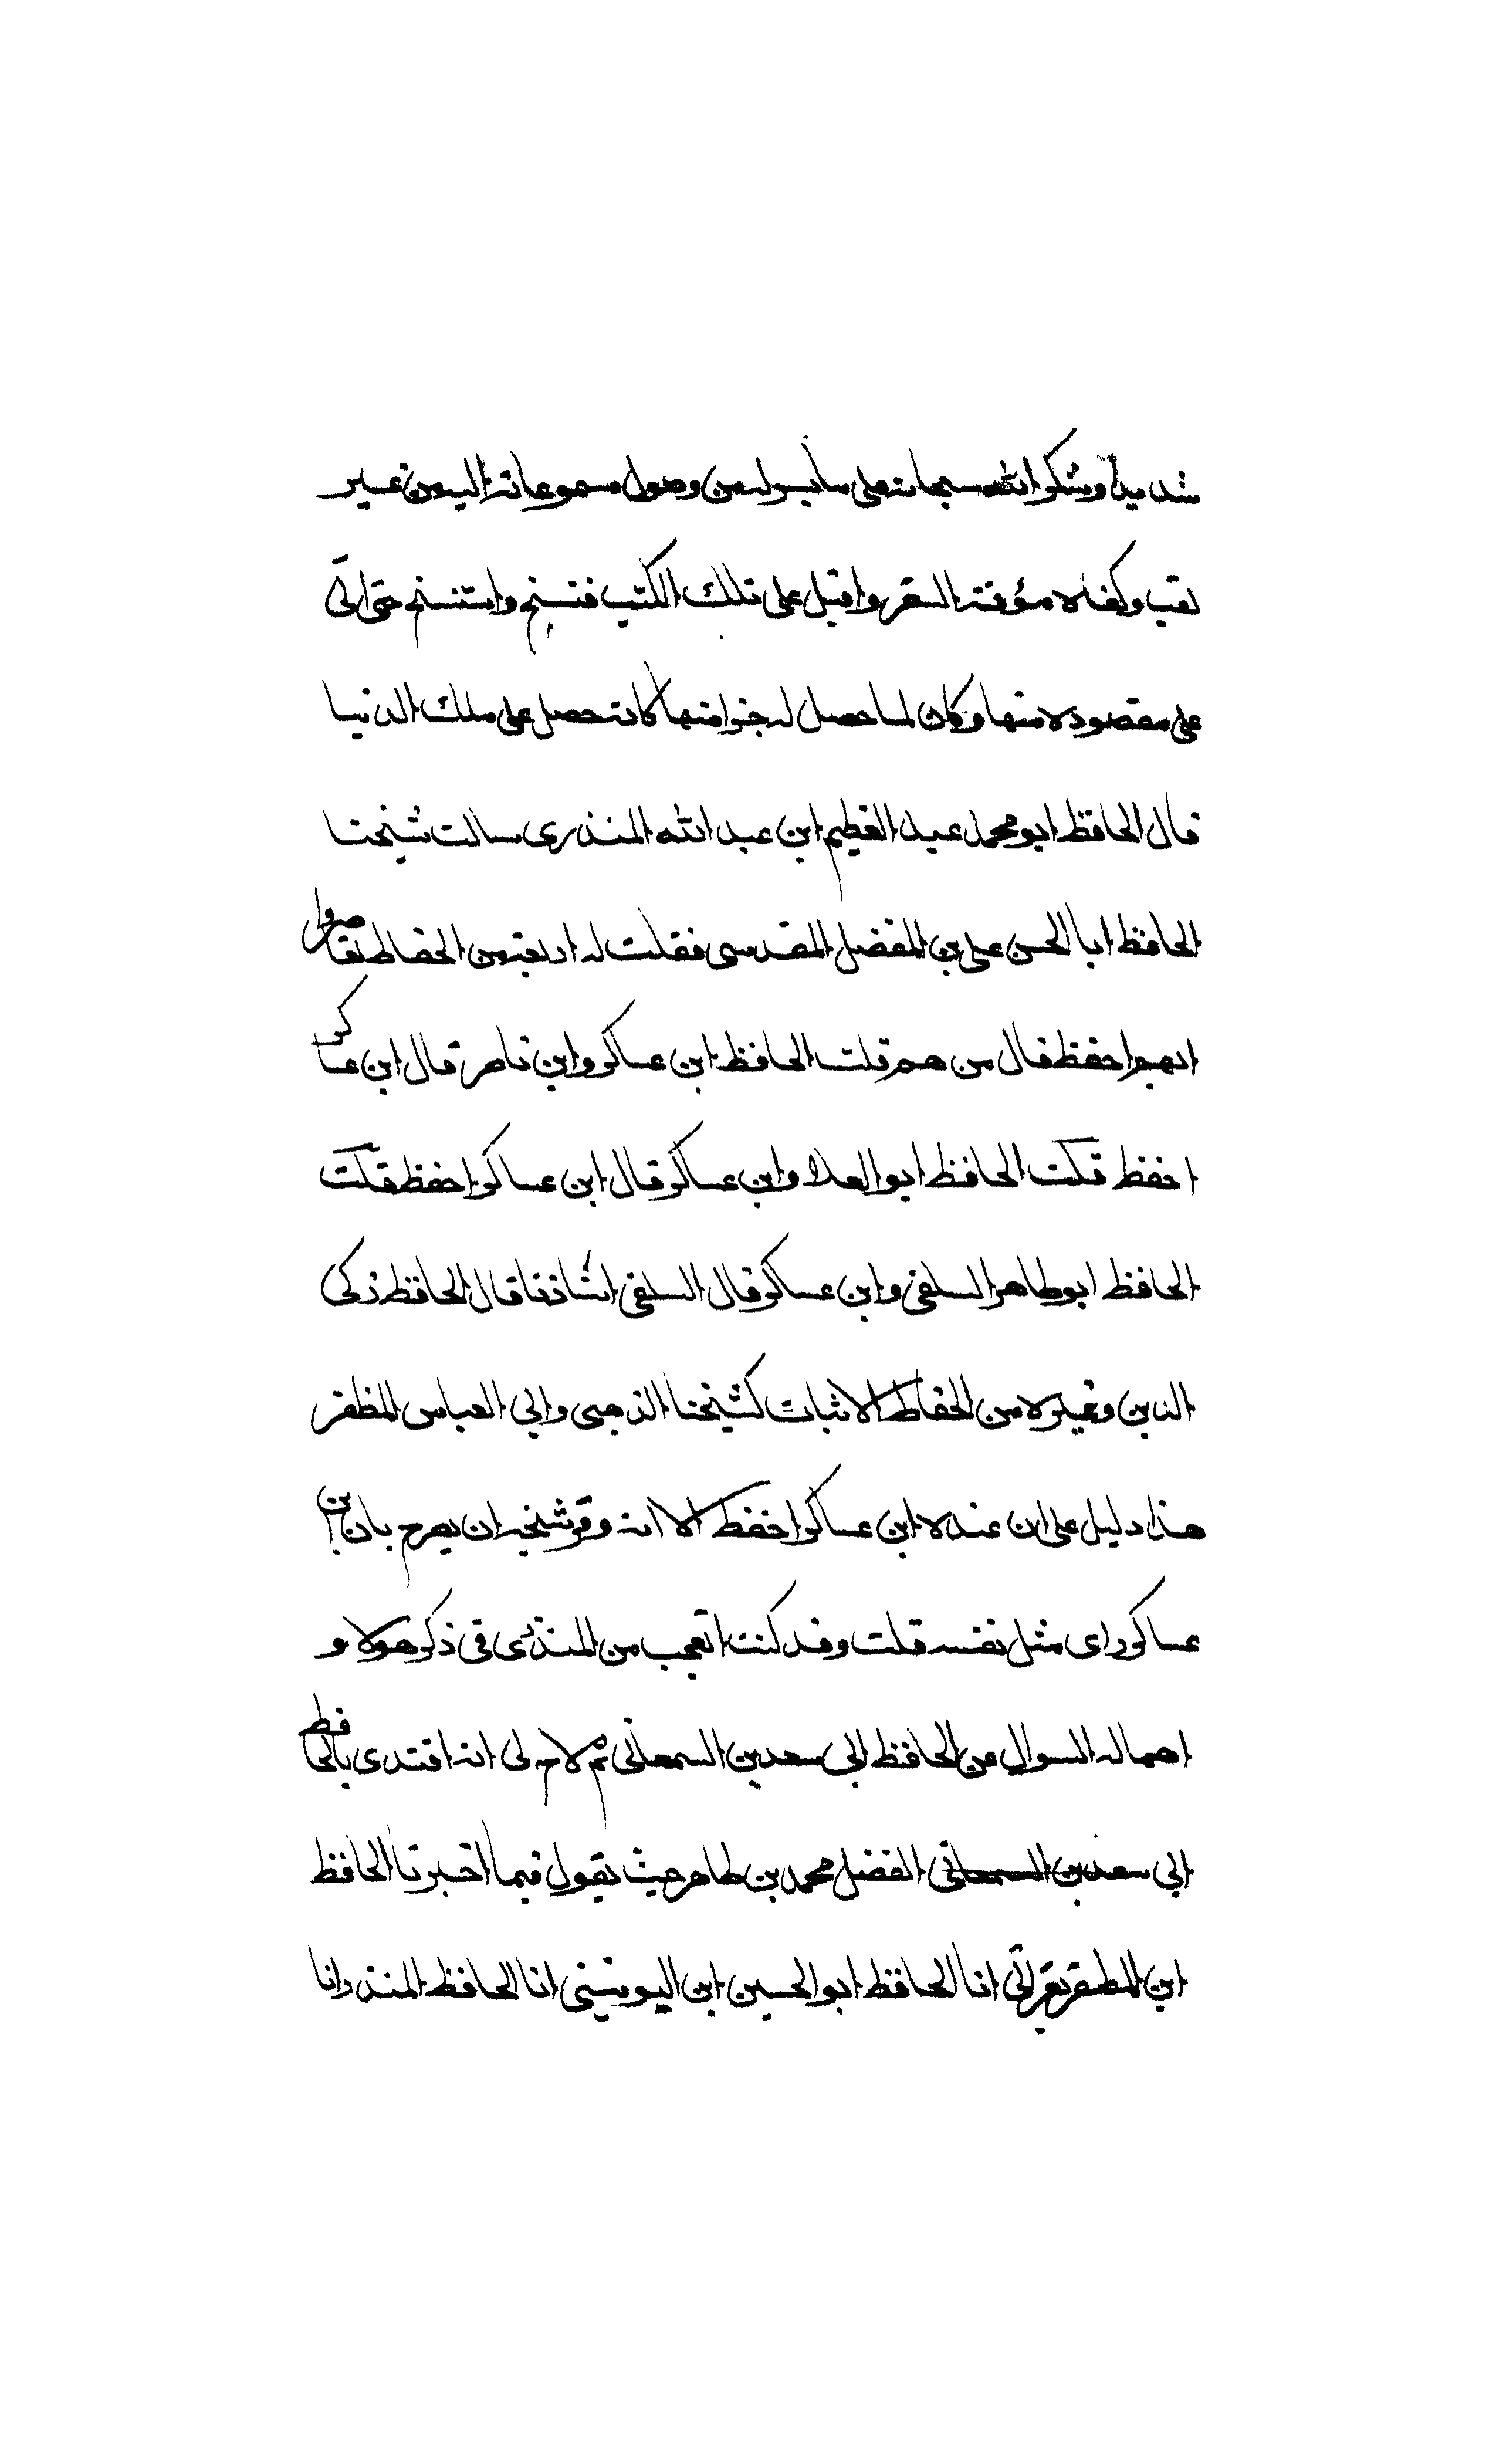 شديدا وشكر الله سبحانه على ما يسر له من وصول مسموعاته اليه من غير
تعب وكفاه مؤونة السفر واقبل على تلك الكتب فنسخ واستنسخ حتى اتى
على مقصوده منها وكان لما حصل له جزء منها كانه حصل على ملك الدنيا
قال الحافظ ابو محمد عبد العظيم ابن عبد الله المنذرى سالت شيخنا
الحافظ ابا الحسن على بن المفضل المقدسى فقلت له اربعة من الحفاظ تعاصروا
ايهم احفظ قال من هم قلت الحافظ ابن عساكر وابن ناصر قال ابن عساكر
احفظ قلت الحافظ ابو العلا وابن عساكر قال ابن عساكر احفظ قلت
الحافظ ابو طاهر السلفى وابن عساكر قال السلفى استاذنا قال الحافظ زكى
الدين وغيره من الحفاظ الاثبات كشيخنا الذهبى وابي العباس المظفر
هذا دليل على ان عنده ابن عساكر احفظ الا انه وقر شيخه ان يصرح بان ابن
عساكر راى مثل نفسه قلت وقد كنت اتعجب من المنذرى فى ذكر هولاء و
اهماله السوال عن الحافظ ابي سعد بن السمعانى ثم لاح لى انه اقتدى بالحافظ
ابي سعد بن السمعانى الفضل محمد بن طاهر حيث يقول فيما اخبرنا الحافظ
ابن المظفر بقراتى انا الحافظ ابو الحسين ابن اليونينى انا الحافظ المنذر انا